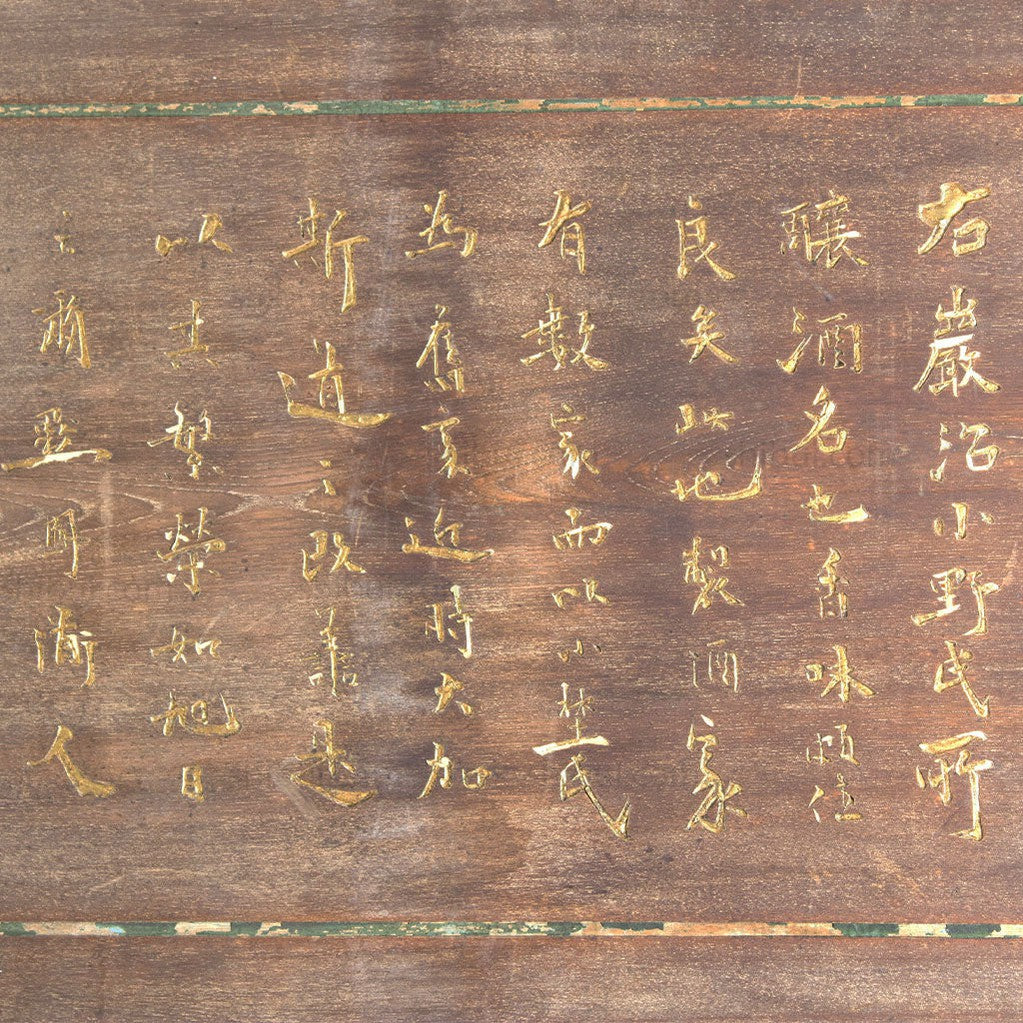 右巖治小野氏所
醸酒名也香味頗佳
良矣此地製酒家
有數家而以小野氏
為舊家近時大加
斯道之改善是
以其繁榮如旭日